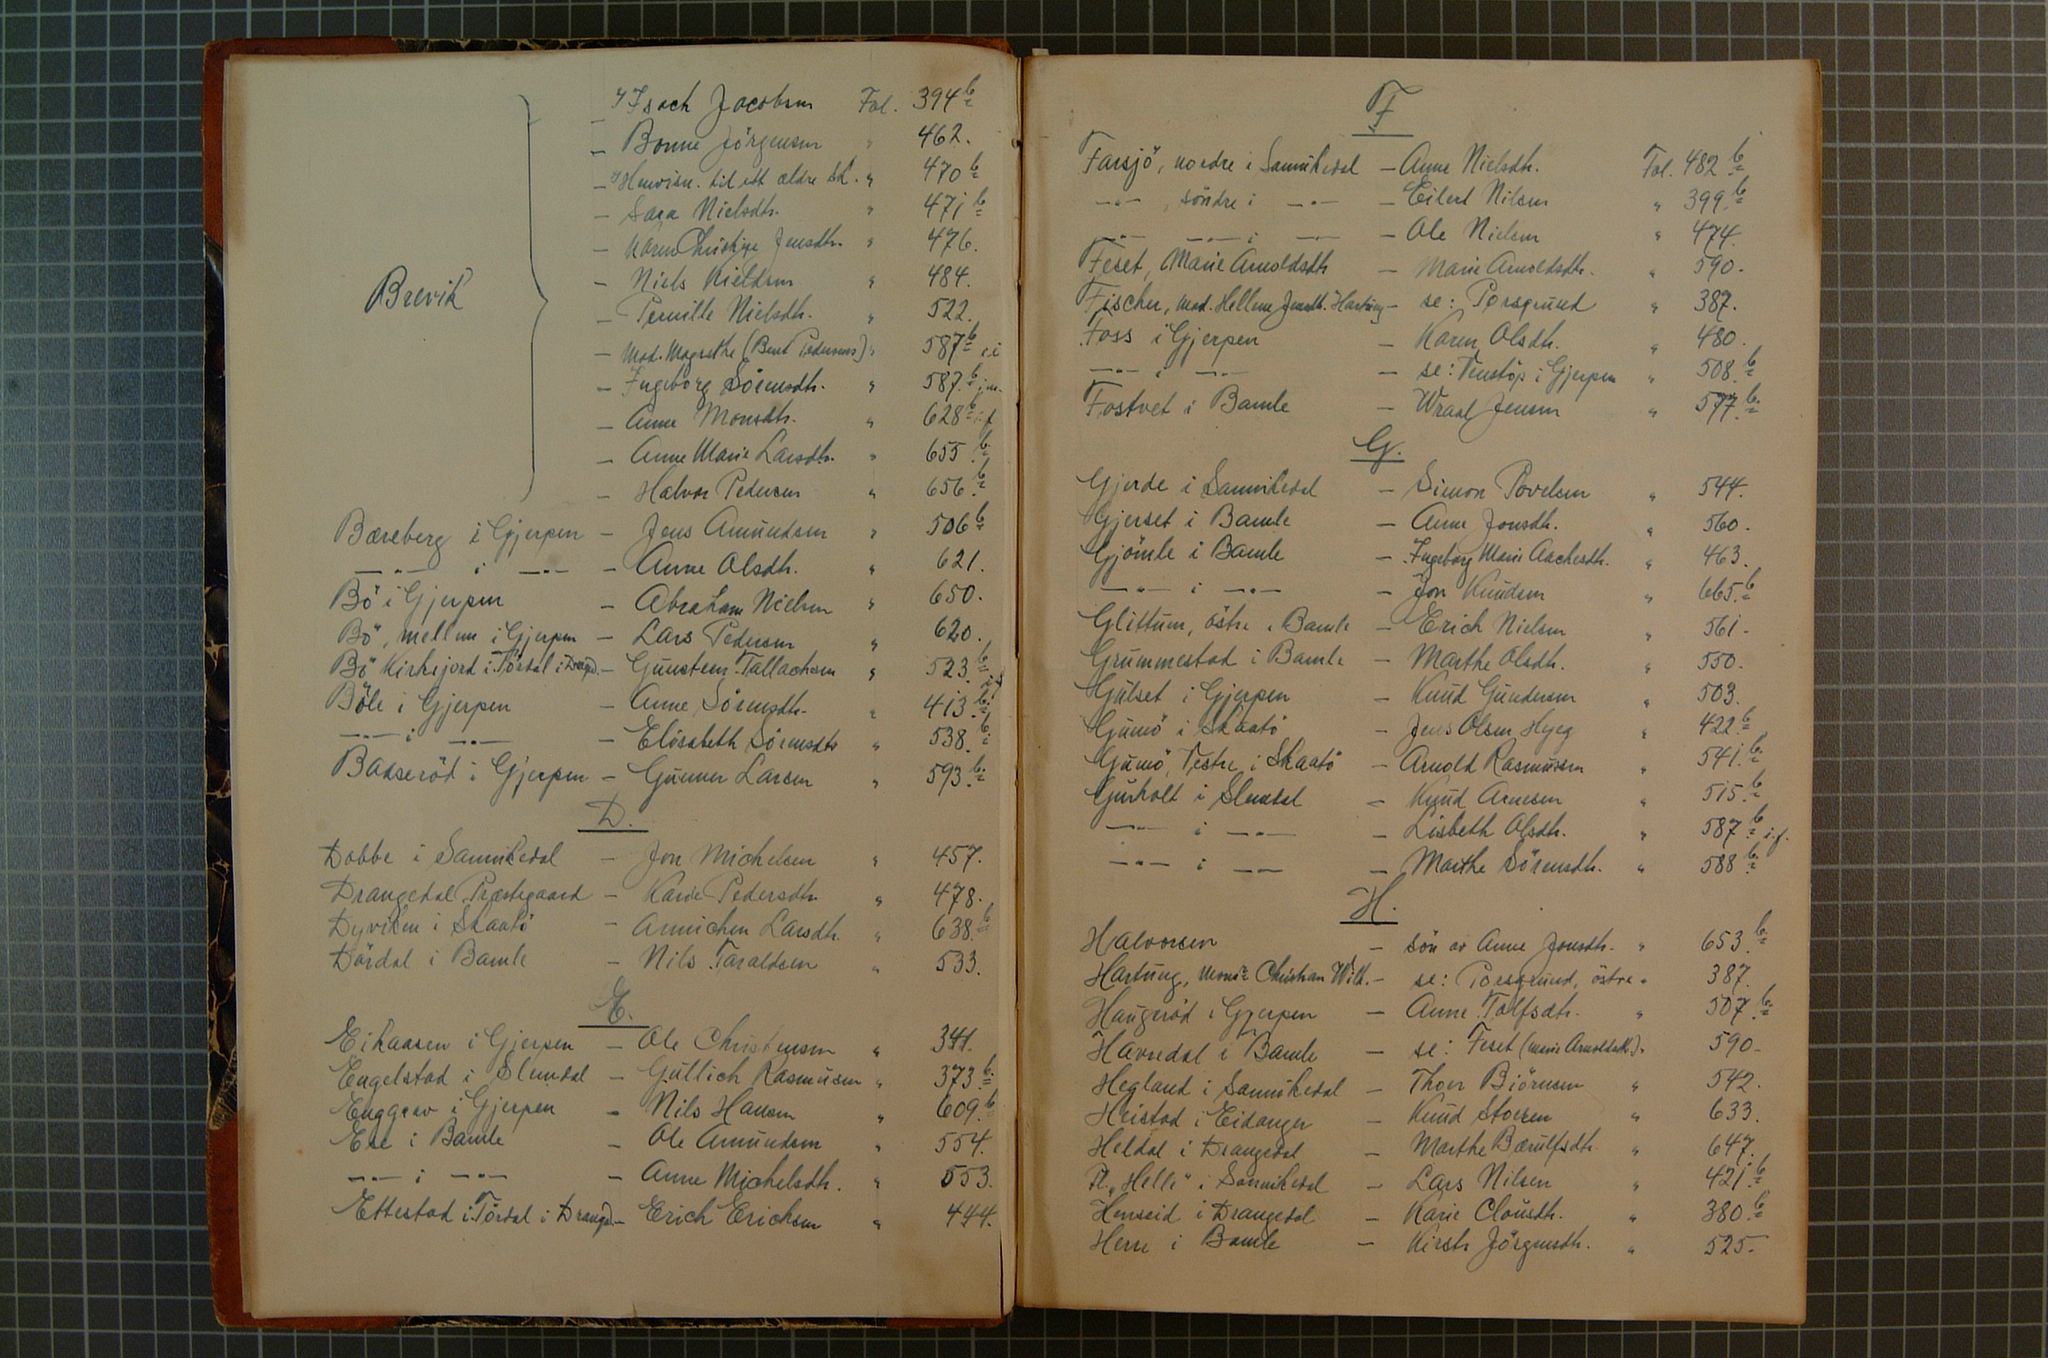 Brevik
Isach Jacobsen Fol. 394 b
– Bonne Jörgensen " 462.
– Henvisn. til ett ældre sk. " 470 b
– Sara Nielsdtr. " 471 b
– Karen Christine Jensdtr. " 476.
– Niels Kieldsen " 484.
– Pernille Nielsdtr. " 522.
– Mad. Magrethe (Bent Pedersens) " 587 b i.i
– Ingeborg Sörensdtr. " 587 b i.m.
– Anne Monsdtr. " 628 b i.f
– Anne Marie Larsdtr. " 655 b
– Halvor Pedersen " 656 b
Bæreberg i Gjerpen – Jens Amundsen " 506 b
—"— i —"— – Anne Olsdtr. " 621.
Bö i Gjerpen – Abraham Nielsen " 650.
Bö, mellem i Gjerpen – Lars Pedersen " 620.
Bö Kirkejord i Tördal i Drangd. – Gunsten Tallachsen " 523 b i.f
Böle i Gjerpen – Anne Sörensdtr. " 413 b
—"— i —"— – Elisabeth Sörensdtr " 538 b
Baaseröd i Gjerpen – Gunner Larsen " 593 b
D.
Dobbe i Sannikedal – Jon Michelsen " 457.
Drangedal Præstegaard – Karie Pedersdtr. " 478.
Dyviken i Skaatö – Annichen Larsdtr. " 638 b
Dördal i Bamle – Nils Taraldsen " 533.
E.
Eikaasen i Gjerpen – Ole Christensen " 341.
Engelstad i Slemdal – Gullich Rasmusen " 373 b
Enggrav i Gjerpen – Nils Hansen " 609 b
Ere i Bamle – Ole Amundsen " 554.
—"— i —"— – Anne Michelsdtr. " 553.
Ettestad i Tördal i Drangd. – Erich Ericksen " 444.
F
Farsjö, nordre i Sannikedal – Anne Nielsdtr. Fol. 482 b
—"— , söndre i —"— – Eilert Nilsen " 399 b
—"— —"— i —"— – Ole Nielsen " 474.
Feset, Marie Arnoldsdtr – Marie Arnoldsdtr. " 590.
Fischer, mad. Hellene Jensdtr. Hartung – se: Porsgrund " 387.
Foss i Gjerpen – Karen Olsdtr. " 480.
—"— i —"— – se: Venstöp i Gjerpen " 508 b
Fostvet i Bamle – Wraal Jensen " 577 b
G.
Gjerde i Sannikedal – Simon Povelsen " 544.
Gjerset i Bamle – Anne Jonsdtr. " 560.
Gjömle i Bamle – Ingeborg Marie Aachesdtr. " 463.
—"— i —"— – Jon Knudsen " 665 b
Glittum, östre i Bamle – Erich Nielsen " 561.
Grummestad i Bamle – Marthe Olsdtr. " 550.
Gulset i Gjerpen – Knud Gundersen " 503.
Gumö i Skaatö – Jens Olsen Hyeg " 422 b
Gumö, Vestre, i Skaatö – Arnold Rasmussen " 541 b
Gurholt i Slemdal – Knud Arnesen " 515 b
—"— i —"— – Lisbeth Olsdtr. " 587 b i.f.
—"— i —"— – Marthe Sörensdtr. " 588 b
H.
Halvorsen – sön av Anne Jonsdtr. " 653 b
Hartung, Monsr Christian Wilh. – se: Porsgrund, östre " 387.
Haugeröd i Gjerpen – Anne Tolfsdtr. " 507 b
Havredal i Bamle – se: Feset (Marie Arnoldsdtr.) " 590.
Hegland i Sannikedal – Thor Biörnsen " 542.
Heistad i Eidanger – Knud Storem " 633.
Heldal i Drangedal – Marthe Bærulfsdtr. " 647.
Pl. "Helle" i Sannikedal – Lars Nilsen " 421 b
Henseid i Drangedal – Karie Clousdtr. " 380 b
Herre i Bamle – Kirsti Jörgensdtr. " 525.